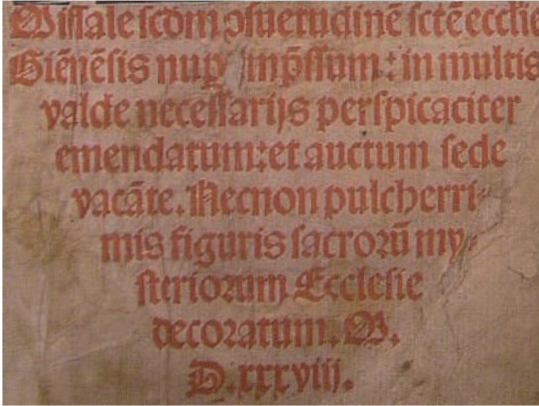 Miſſale ſcdm ꝯſuetudinē ſctē ecclie
Giēnēſis nuꝑ inp̄ſſum: in multis
valde neceſſarijs perſpicaciter
emendatum: et auctum ſede
vacāte. Necnon pulcherri-
mis figuris ſacroꝛū my-
ſterioꝛum Eccleſie
decoꝛatum. M.
D.xxxviij.